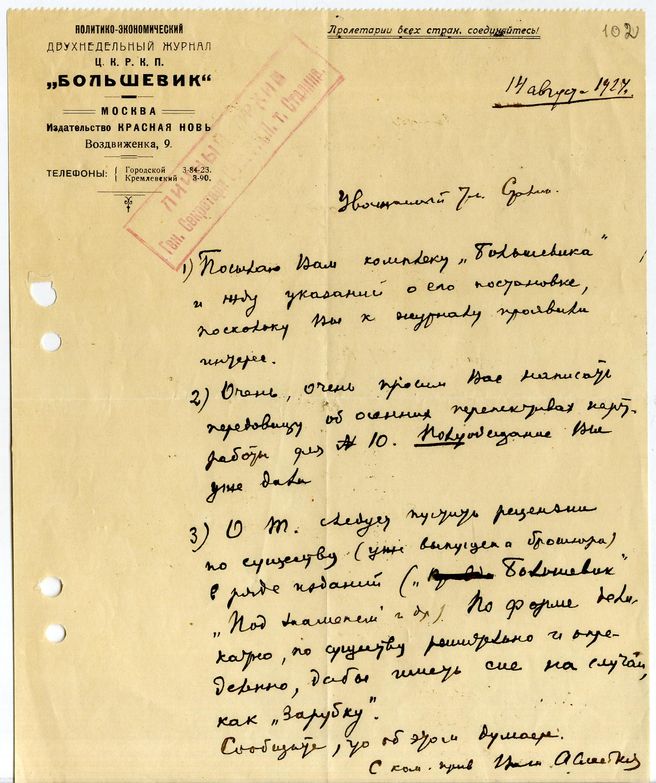 ПОЛИТИКО-ЭКОНОМИЧЕСКИЙ
ДВУХНЕДЕЛЬНЫЙ ЖУРНАЛ
Ц. К. Р. К. П.
„БОЛЬШЕВИК“
МОСКВА
Издательство КРАСНАЯ НОВЬ
Воздвиженка, 9.
ТЕЛЕФОНЫ: Городской 3-84-23.
Кремлевский 3-90.
Пролетарии всех стран, соединяйтесь!
102
14 август 1924.
ЛИЧНЫЙ АРХИВ
Ген. Секретаря т. Сталина.
Уважаемый т. Сталин.
1) Посылаю Вам комплект „Большевика“
и жду указаний о его постановке,
поскольку Вы к журналу проявили
интерес.
2) Очень, очень просим Вас написать
передовицу об осенних перспективах парт-
работы для № 10. Полуобещание Вы
уже дали
3) О Т. следует пустить рецензии
по существу (уже выпущена брошюра)
в ряде изданий („Большевик“
„Под знаменем“ и др.) По форме дели-
катно, по существу решительно и опре-
деленно, дабы иметь сие на случай,
как „Зарубку“.
Сообщите, что об этом думаете.
С ком. прив Ваш